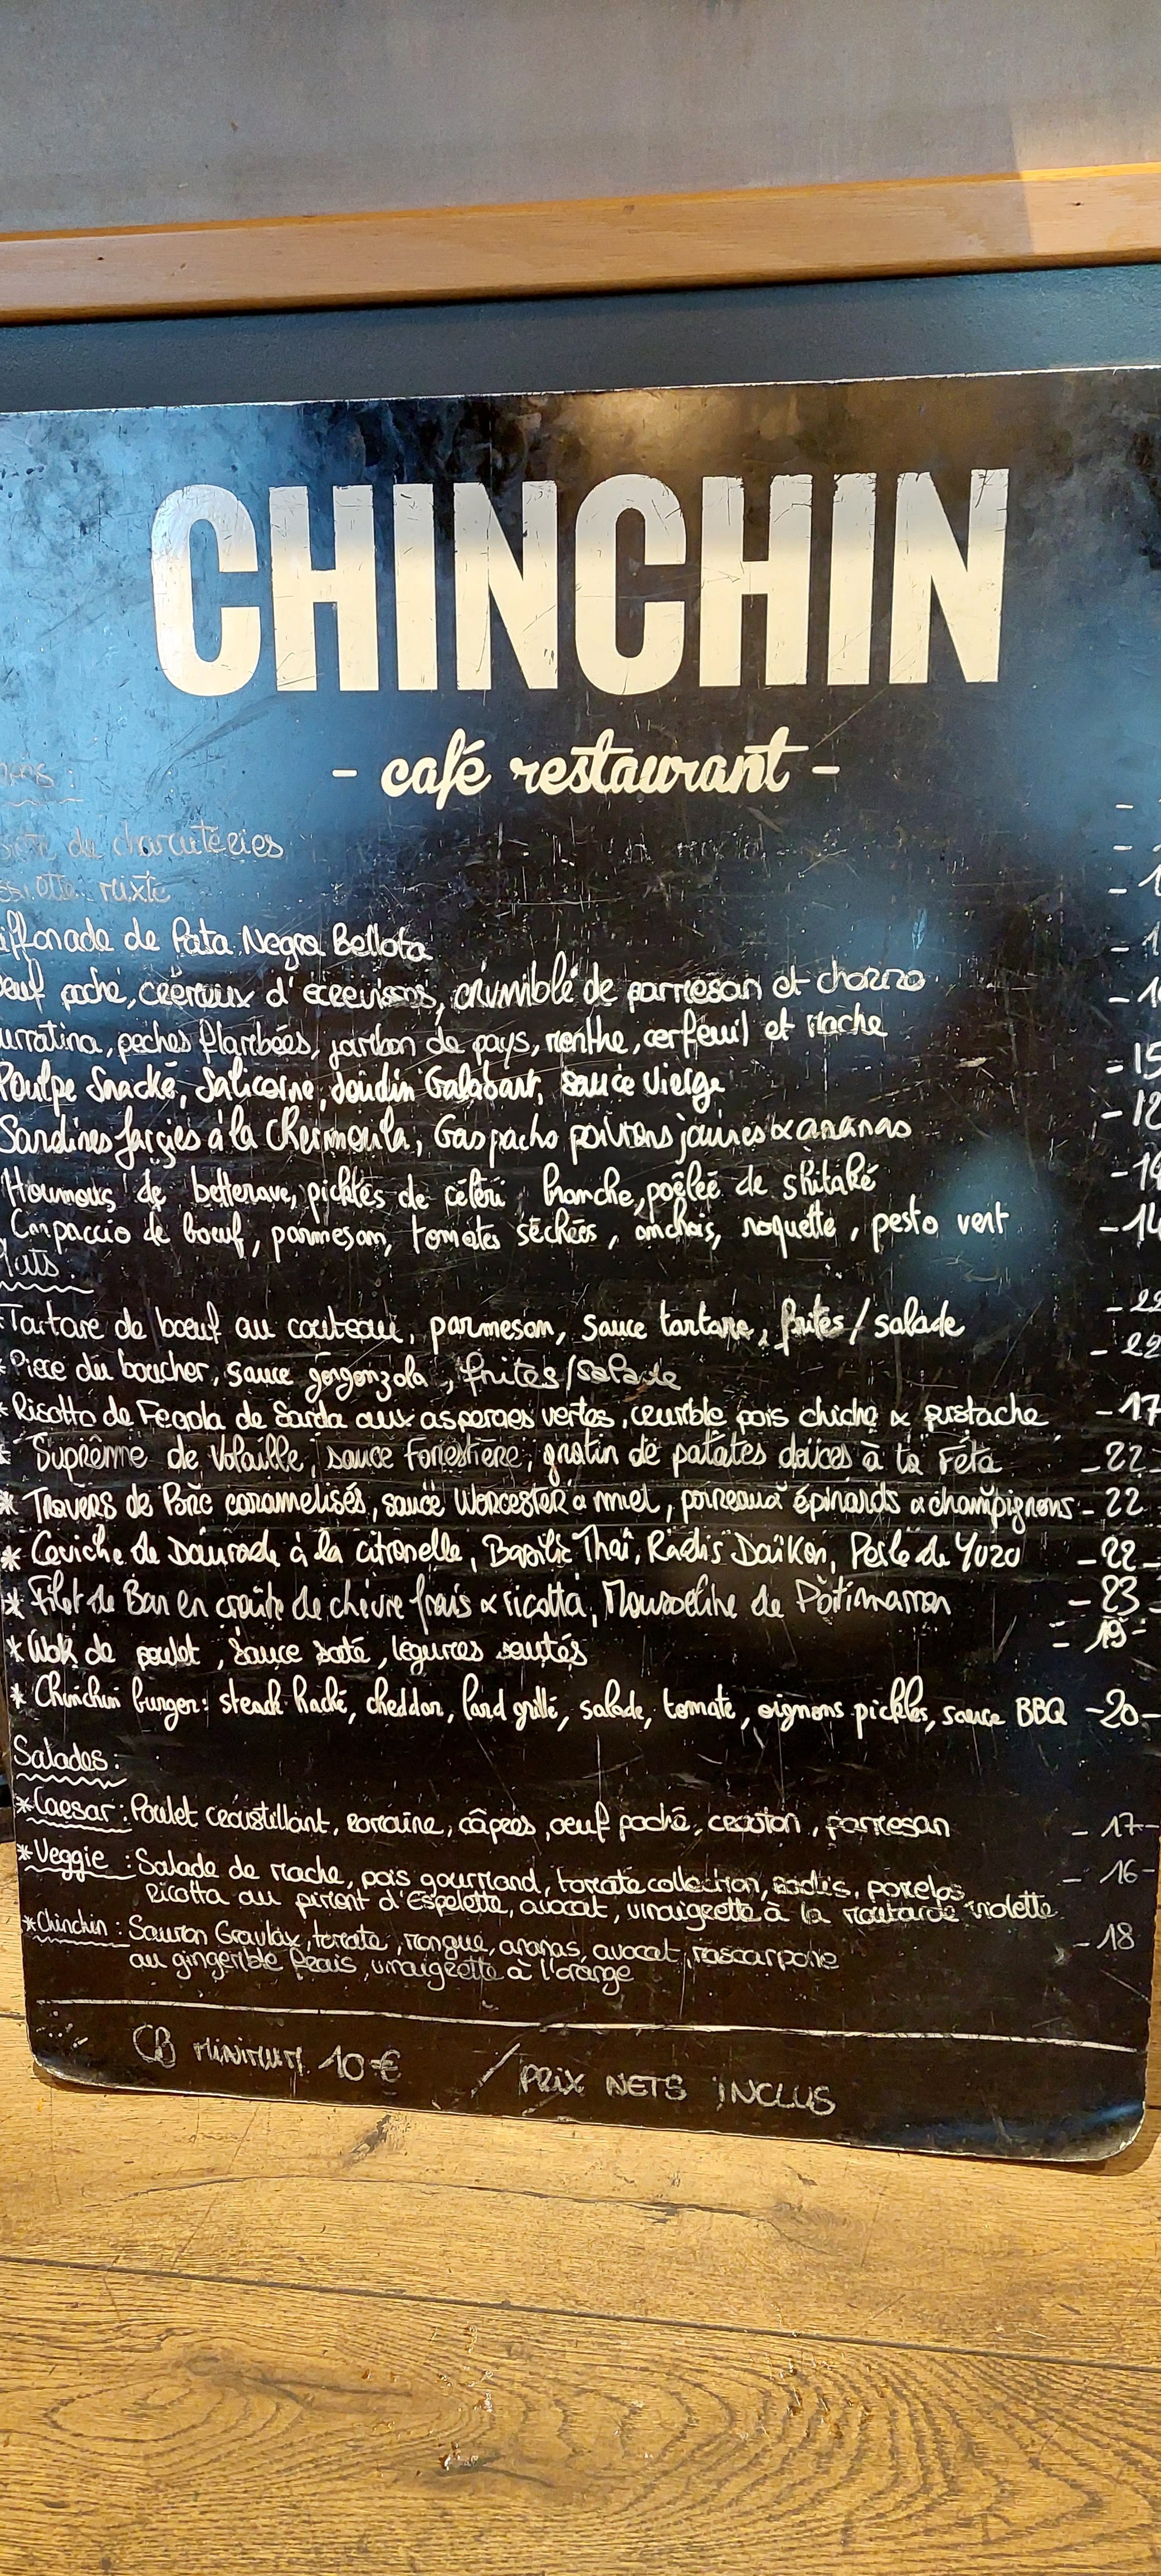 CHINCHIN
- café restaurant -
de charcuteries
mixte
de Pata Negra Bellota
poché, crémeux d'écrevisses, crumble de parmesan et chorizo
peches flambées, jambon de pays, menthe, cerfeuil et mache
Poulpe Snacké, Salicorne, boudin Galabart, sauce vierge - 15
Sardines farcies à la Chermoula, Gaspacho poivrons jaunes & ananas - 12
Houmous de betterave, pickles de céleri, branche, poêlée de shitaké
Carpaccio de boeuf, parmesan, tomates séchées, anchois, roquette, pesto vert - 14
Plats:
Tartare de boeuf au couteau, parmesan, sauce tartare, frites / salade - 22
* Piece du boucher, sauce gorgonzola, frites/salade - 22
* Risotto de Fregola de Sarda aux asperges vertes, crumble pois chiche & pistache - 17
* Suprême de Volaille, sauce Forestière, gratin de patates douces à la Féta - 22
* Travers de Porc caramelisés, sauce Worcester & miel, poireaux épinards & champignons - 22
* Ceviche de Daurade à la citronelle, Basilic Thaï, Radis Daïkon, Perle de Yuzu - 22
* Filet de Bar en croûte de chèvre frais & ricotta, Mousseline de Potimarron - 23
* Wok de poulet, Sauce saté, légumes sautés - 19 -
* Chinchin burger: steack haché, cheddar, lard grillé, salade, tomate, oignons pickles, sauce BBQ - 20 -
Salades:
* Caesar: Poulet croustillant, romaine, câpres, oeuf poché, crouton, parmesan - 17 -
* Veggie: Salade de mache, pois gourmand, tomate collection, radis, pomelos - 16 -
Ricotta au piment d'Espelette, avocat, vinaigrette à la moutarde violette
* Chinchin: Saumon Gravlax, tomate, mangue, ananas, avocat, mascarpone - 18
au gingembre frais, vinaigrette à l'orange
CB MINIMUM 10€ / PRIX NETS INCLUS